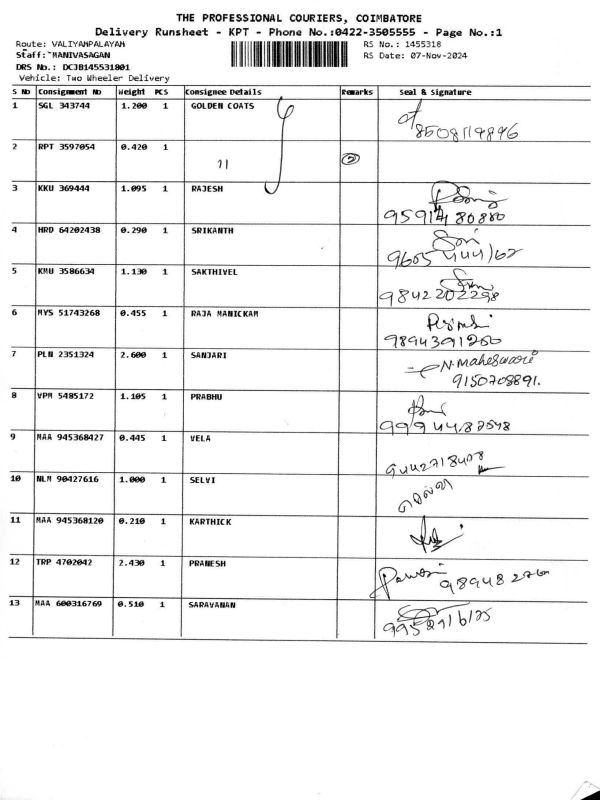 THE PROFESSIONAL COURIERS, COIMBATORE
Delivery Runsheet - KPT - Phone No.:0422-3505555 - Page No.:1
Route: VALIYAMPALAYAM RS No.: 1455318
Staff: MANIVASAGAN RS Date: 07-Nov-2024
DRS No.: DCJB145531801
Vehicle: Two Wheeler Delivery
S No Consignment No Weight PCS Consignee Details Remarks Seal & Signature
1 SGL 343744 1.200 1 GOLDEN COATS
8508119896
2 RPT 3597054 0.420 1
11 2
3 KKU 369444 1.095 1 RAJESH
9591480880
4 HRD 64202438 0.290 1 SRIKANTH
9605444162
5 KMU 3586634 1.130 1 SAKTHIVEL
9842202298
6 MYS 51743268 0.455 1 RAJA MANICKAM
9894391260
7 PLN 2351324 2.600 1 SANJARI N. Maheswari
9150708891.
8 VPM 5485172 1.105 1 PRABHU
9 MAA 945368427 0.445 1 VELA
9442718478
10 NLM 90427616 1.000 1 SELVI
செல்வி
11 MAA 945368120 0.210 1 KARTHICK
12 TRP 4702042 2.430 1 PRANESH
13 MAA 600316769 0.510 1 SARAVANAN